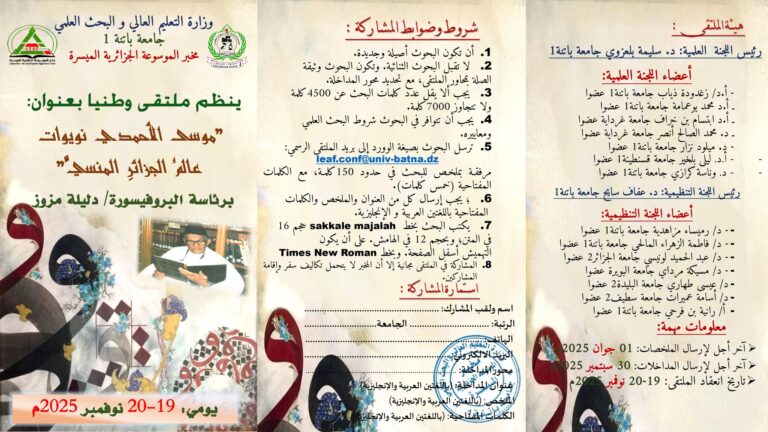 وزارة التعليم العالي و البحث العلمي
جامعة باتنة 1
مخبر الموسوعة الجزائرية الميسرة
ينظم ملتقى وطنيا بعنوان:
"موسى الأحمدي نويوات
عالمُ الجزائرِ المنسيّ"
برئاسة البروفيسورة/ دليلة مزوز
يومي: 19-20 نوفمبر 2025م
شروط وضوابط المشاركة :
1. أن تكون البحوث أصيلة وجديدة.
2. لا تقبل البحوث الثنائية. وتكون البحوث وثيقة
الصلة بمحاور الملتقى، مع تحديد محور المداخلة.
3. يجب ألا يقل عدد كلمات البحث عن 4500 كلمة
ولا تتجاوز 7000 كلمة.
4. يجب أن تتوافر في البحوث شروط البحث العلمي
ومعاييره.
5. ترسل البحوث بصيغة الوورد إلى بريد الملتقى الرسمي:
leaf.conf@univ-batna.dz
مرفقة بملخص للبحث في حدود 150 كلمة، مع الكلمات
المفتاحية (خمس كلمات).
6. ؛ يجب إرسال كل من العنوان والملخص والكلمات
المفتاحية باللغتين العربية و الإنجليزية.
7. يكتب البحث بخط sakkale majalah حجم 16
في المتن؛ وبحجم 12 في الهامش. على أن يكون
التهميش أسفل الصفحة. وبخط Times New Roman
8. المشاركة في الملتقى مجانية إلا أن المخبر لا يتحمل تكاليف سفر وإقامة
المشاركين.
استمارة المشاركة :
اسم ولقب المشارك:
الرتبة: الجامعة:
الهاتف:
البريد الالكتروني:
محور المداخلة:
عنوان المداخلة: (باللغتين العربية والإنجليزية)
الملخص: (باللغتين العربية والإنجليزية)
الكلمات المفتاحية: (باللغتين العربية والإنجليزية)
هيئة الملتقى :
رئيس اللجنة العلمية: د. سليمة بلعزوي جامعة باتنة1
أعضاء اللجنة العلمية:
- أ.د/ زغدودة ذياب جامعة باتنة1 عضوا
- أ.د محمد بوعمامة جامعة باتنة1 عضوا
- أ.د ابتسام بن خراف جامعة غرداية عضوا
- د. محمد الصالح أنصر جامعة غرداية عضوا
- د. ميلود نزار جامعة باتنة1 عضوا
- أ.د. ليلى بلخير جامعة قسنطينة1 عضوا
- د. وناسة كرازي جامعة باتنة1 عضوا
رئيس اللجنة التنظيمية: د. عفاف سايح جامعة باتنة1
أعضاء اللجنة التنظيمية:
- د/ رميساء مزاهدية جامعة باتنة1 عضوا
- د/ فاطمة الزهراء المالحي جامعة باتنة1 عضوا
- د/ عبد الحميد لونيسي جامعة الجزائر2 عضوا
- د/ مسيكة مرداي جامعة البويرة عضوا
- د/ عيسى طهاري جامعة البليدة2 عضوا
- د/ أسامة عميرات جامعة سطيف2 عضوا
- أ/ رانية بن فرحي جامعة باتنة1 عضوا
معلومات مهمة:
آخر أجل لإرسال الملخصات: 01 جوان 2025
آخر أجل لإرسال المداخلات: 30 سبتمبر 2025م
تاريخ انعقاد الملتقى: 19-20 نوفمبر 2025م